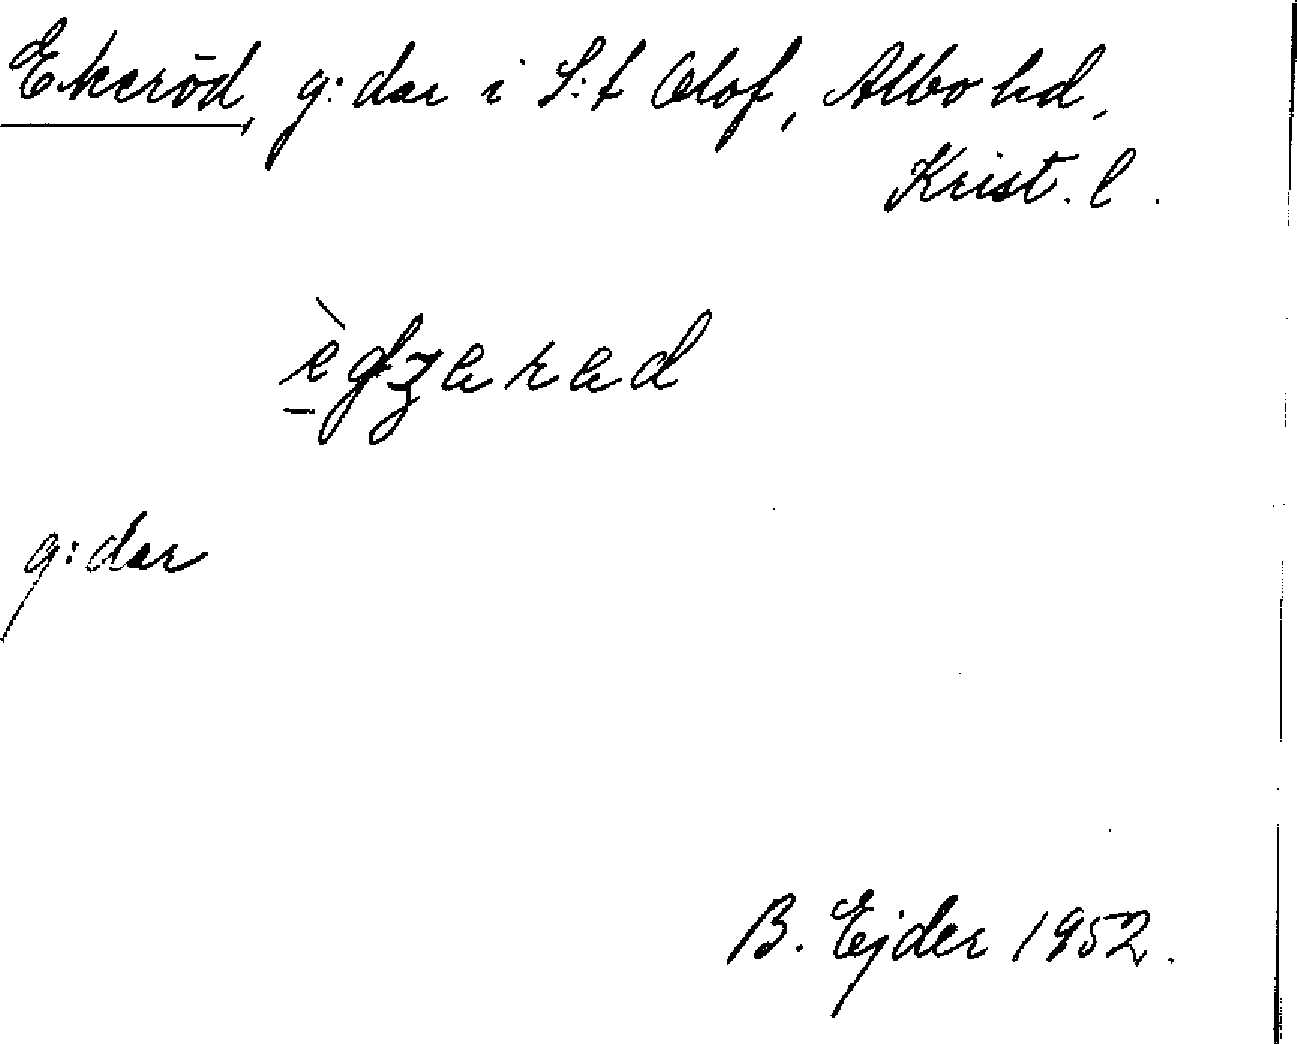 Ekeröd, g:dar i S:t Olof, Albo hd.
Krist. l.
g:dar
B. Ejder 1952.